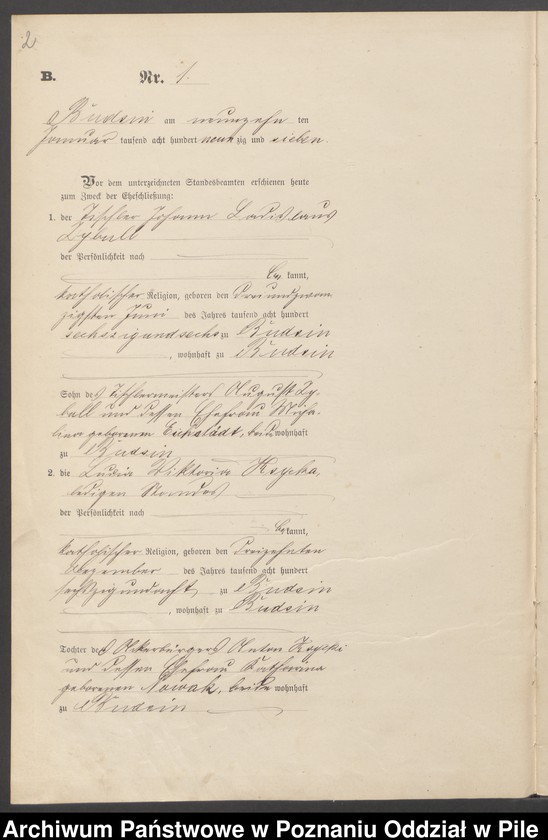 2
B. Nr. 1.
Budsin am neunzehn ten
Januar tausend acht hundert neunzig und sieben.
Vor dem unterzeichneten Standesbeamten erschienen heute
zum Zweck der Eheschließung:
1. der Tischler Johann Ladislaus
Zybull
der Persönlichkeit nach
be kannt,
katholischer Religion, geboren den dreiundzwan
zigsten Juni des Jahres tausend acht hundert
sechszigundsechs zu Budsin
, wohnhaft zu Budsin
Sohn des Tischlermeisters August Zy-
bull und dessen Ehefrau
geborenen Eichstädt, beide wohnhaft
zu Budsin
2. die Viktoria
ledigen Standes
der Persönlichkeit nach
be kannt,
katholischer Religion, geboren den dreizehnten
Dezember des Jahres tausend acht hundert
sechszigundacht zu Budsin
, wohnhaft zu Budsin
Tochter des Ackerbürgers Anton
und dessen Ehefrau Katharina
geborenen Nowak, beide wohnhaft
zu Budsin
Archiwum Państwowe w Poznaniu Oddział w Pile